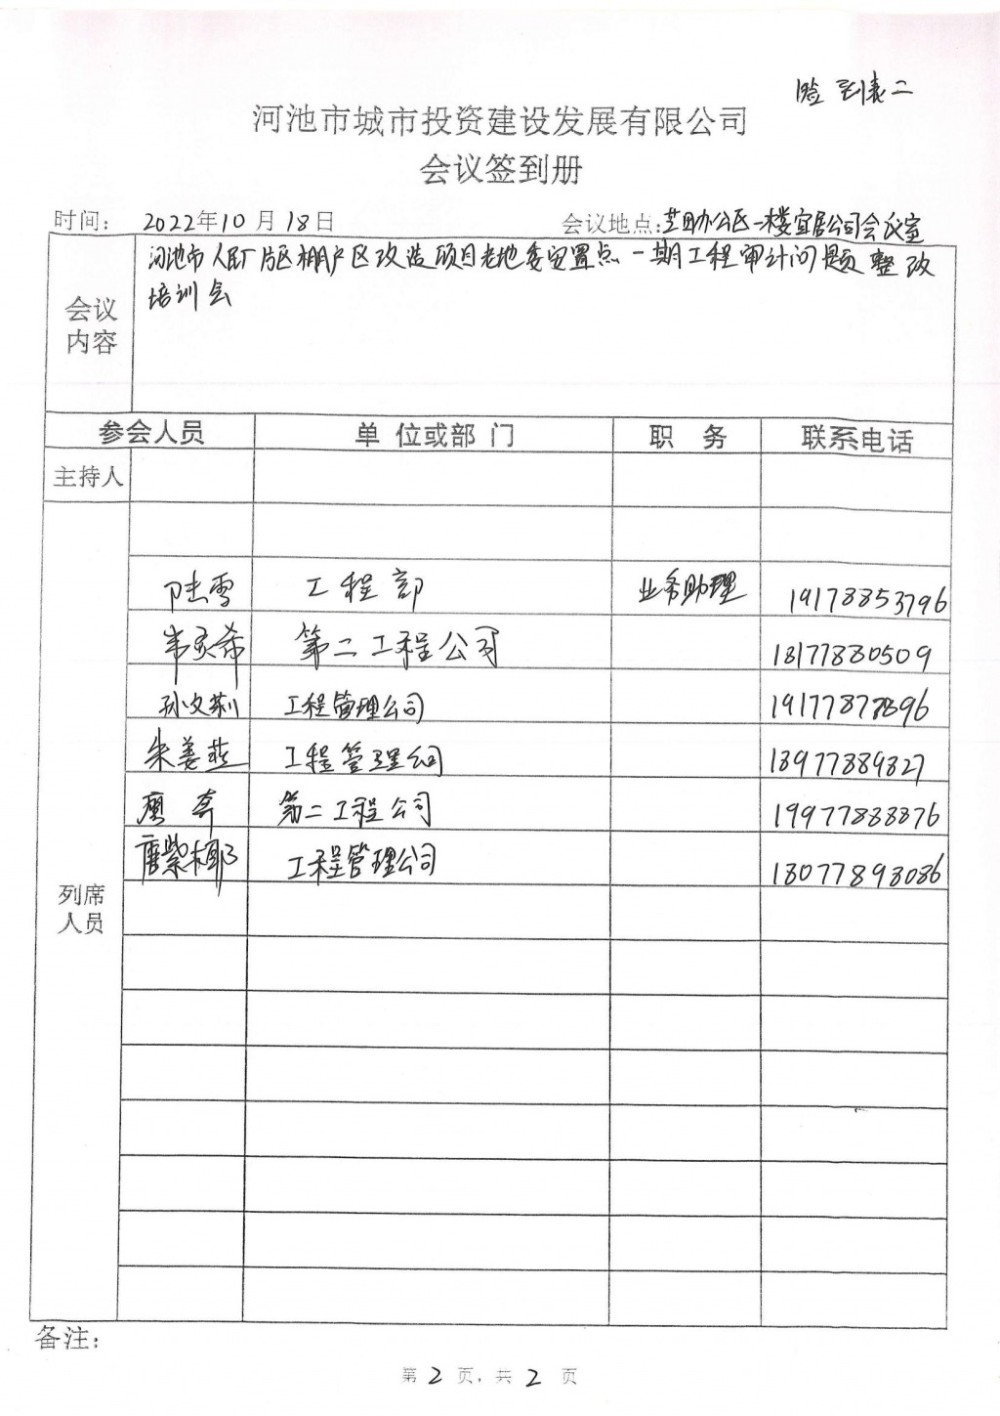 签到表二
河池市城市投资建设发展有限公司
会议签到册
时间： 2022年10月18日 会议地点:芝田办公区一楼宜居公司会议室
会议内容 河池市人民厂片区棚户区改造项目老地委安置点一期工程审计问题整改
培训会
参会人员 单位或部门 职务 联系电话
主持人
陆雪 工程部 业务助理 19178853796
韦炙希 第二工程公司 18177880509
孙文莉 工程管理公司 19177878896
朱姜燕 工程管理公司 18977889827
第二工程公司 19977888876
唐紫椰 工程管理公司 18077898086
列席
人员
备注：
第 2 页，共 2 页